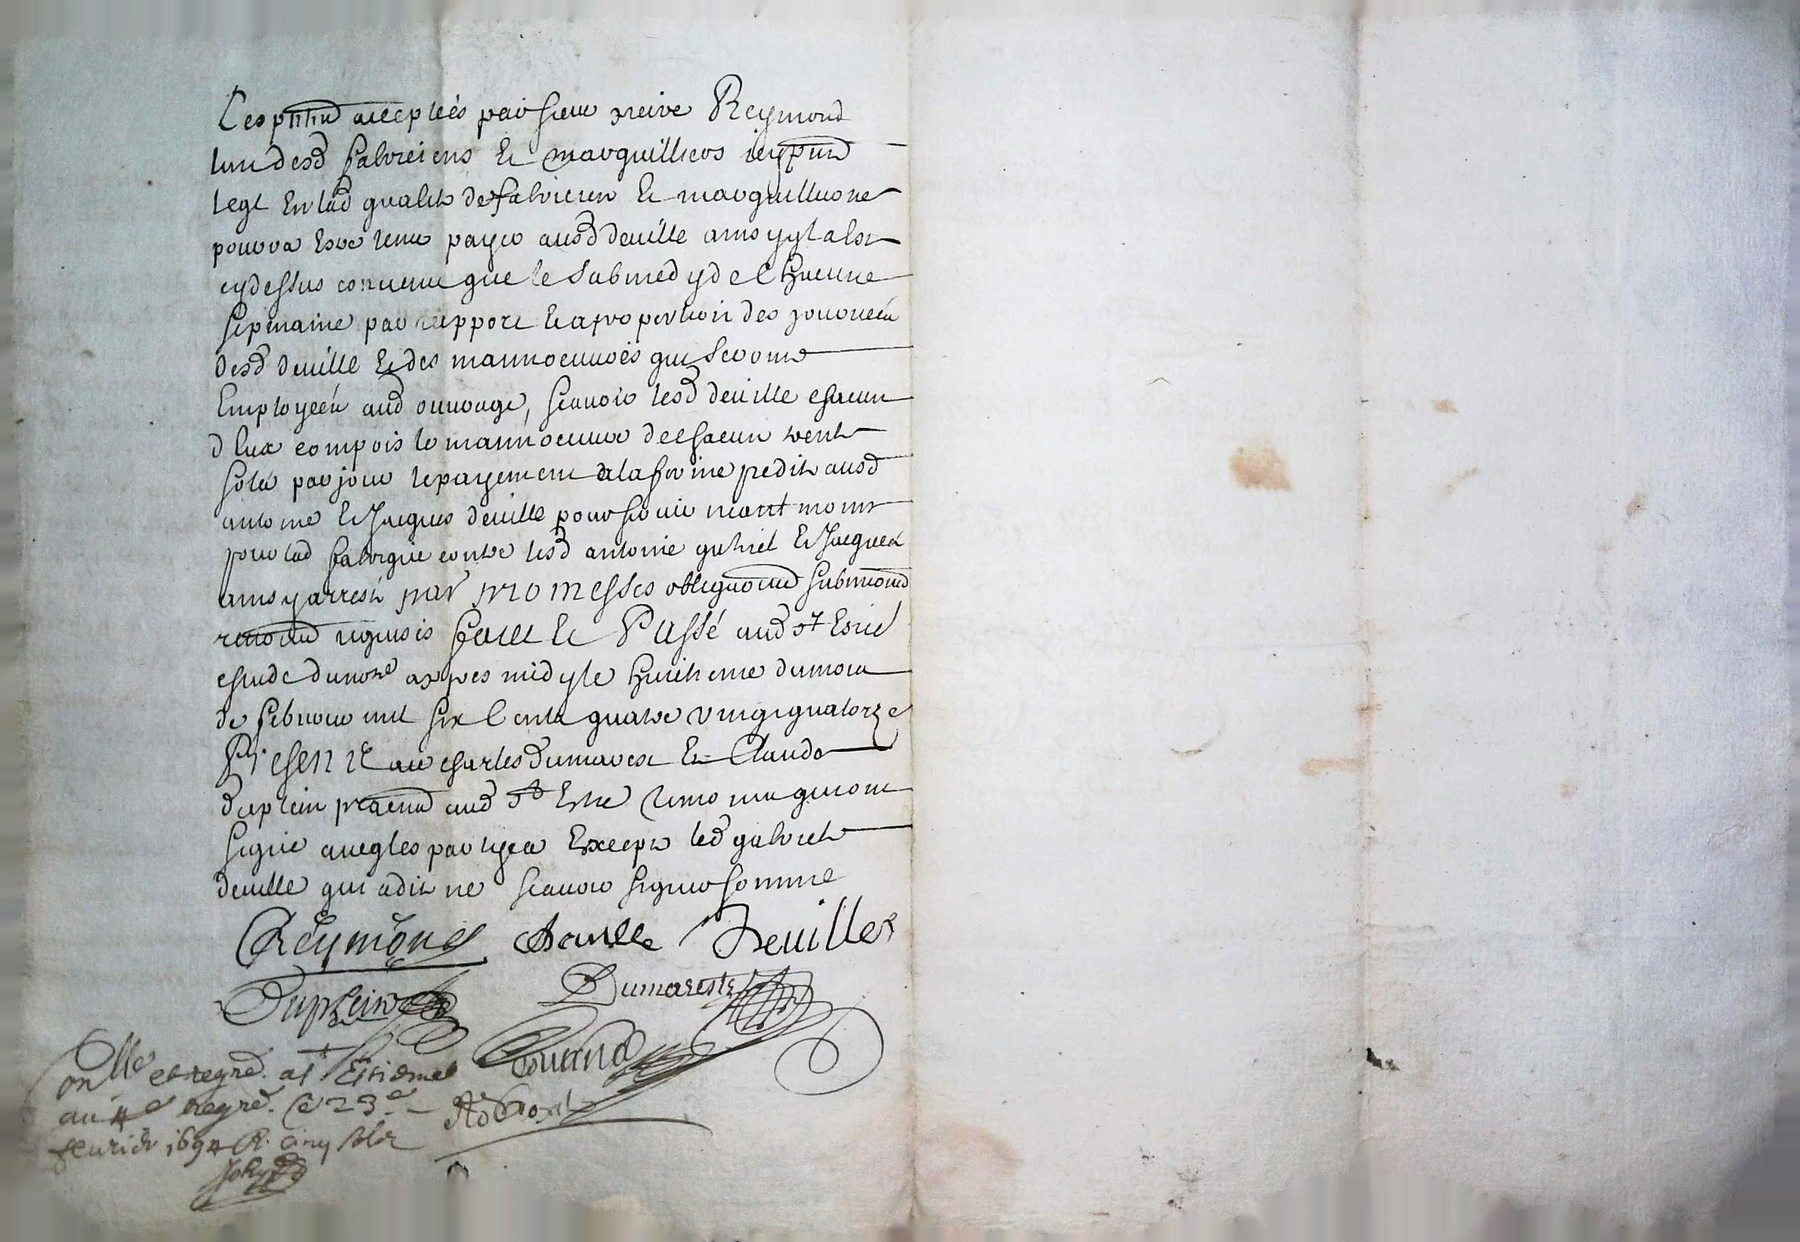 Les pntes acceptées par sieur Reymond
lun desd fabriciens Et marguilliers icy pnt
Leql En lad qualité de fabricien Et marguillier ne
pourra Estre tenu payer ausd deville
cydessus convenu que le Sabmedy de Chacune
sepmaine par rapport Et a proportion des journeés
desd deville Et des mannoeuvres qui Seront
Employeés aud ouvrage, scavoir lesd deville chacun
d Eux compris le mannoeuvre de chacun
sols par jour le payement a la forme predite ausd
antoine Et Jacques deville
pour lad fabrique contre lesd antoine gabriel Et Jacques
ainsy arresté par promesses obligaons submisons
renons Faict Et Passé aud St Estne
estude du nore apres midy le huictieme du mois
de febvrier mil six Cents quatre vingt quatorze
Presentz me charles Dumarest Et Claude
duplein praciens aud St Estne
signé avec les parties Excepté led gabriel
deville qui a dit ne scavoir signer somme
CReymond deville Deville
Duplein Dumarest

onlle et regré. a St Estienne
au 4e regre. Ce 23e
fevrier 1694 R. cinq sols